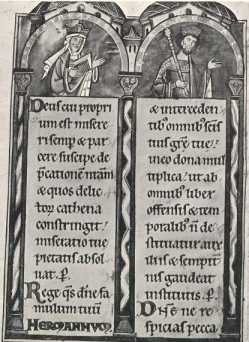 Deus cui propri
um est misere
ri semp & par
cere suscipe de
p̄cationem nr̄am
& quos delic
tor cathena
constringit
miseratio tue
pietatis absol
uat. p̄.
Rege q̄s dn̄e fa
mulum tuū
HERMANNVM
& interceden
tib; omnib; scīs
tuis
donā mul
tiplica. ut ab
omnib; liber
offensis & tem
poralib; n̄ de
stituatur aux
iliis & sempit̄
nis gaudeat
institutis. p̄.
Dn̄e ne re
spicias pecca